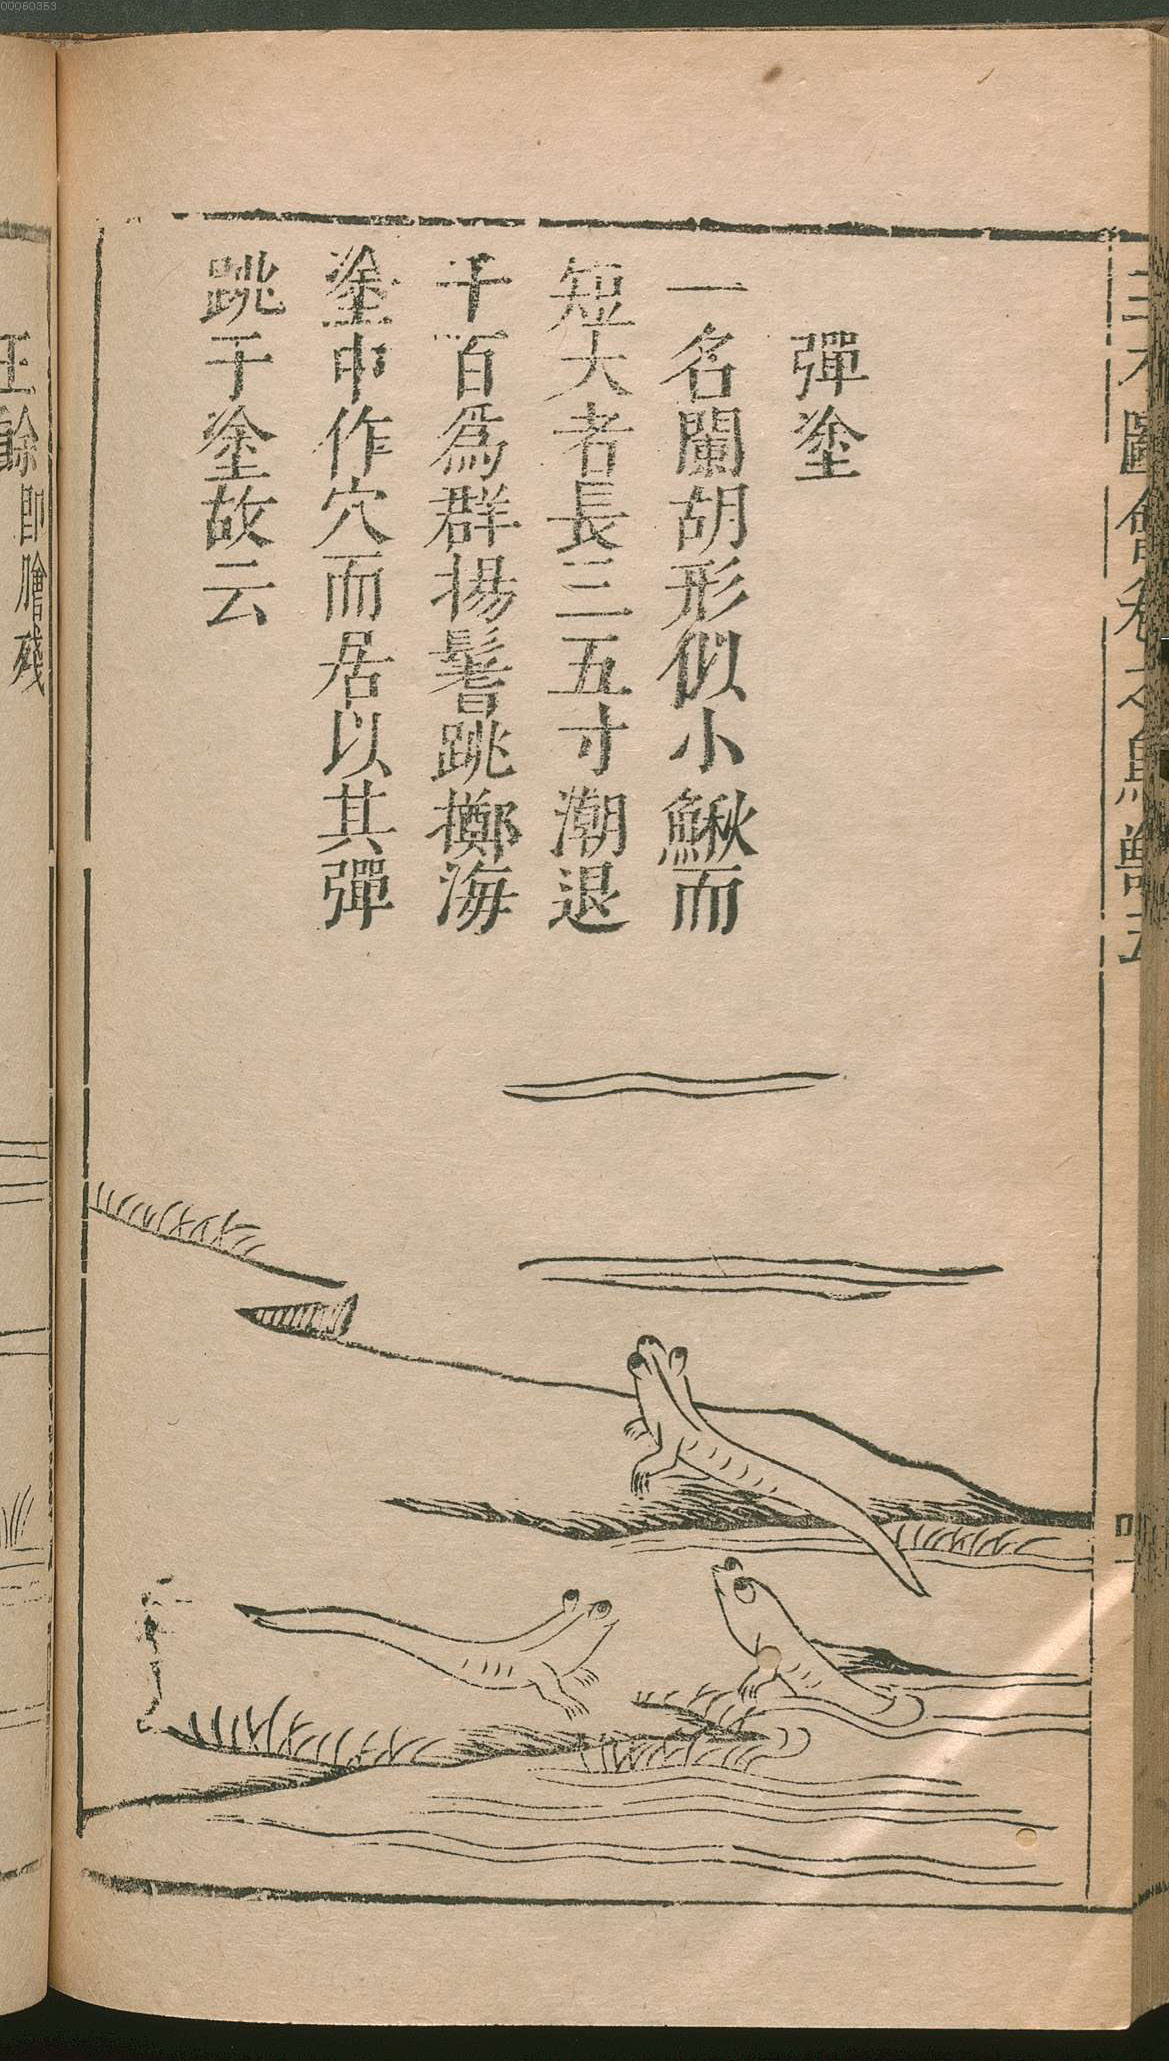 00060353
三才圖會卷之鳥獸五
彈塗
一名闌胡形似小鰍而
短大者長三五寸潮退
千百爲群揚鬐跳擲海
塗中作穴而居以其彈
跳于塗故云
王餘即鱠殘